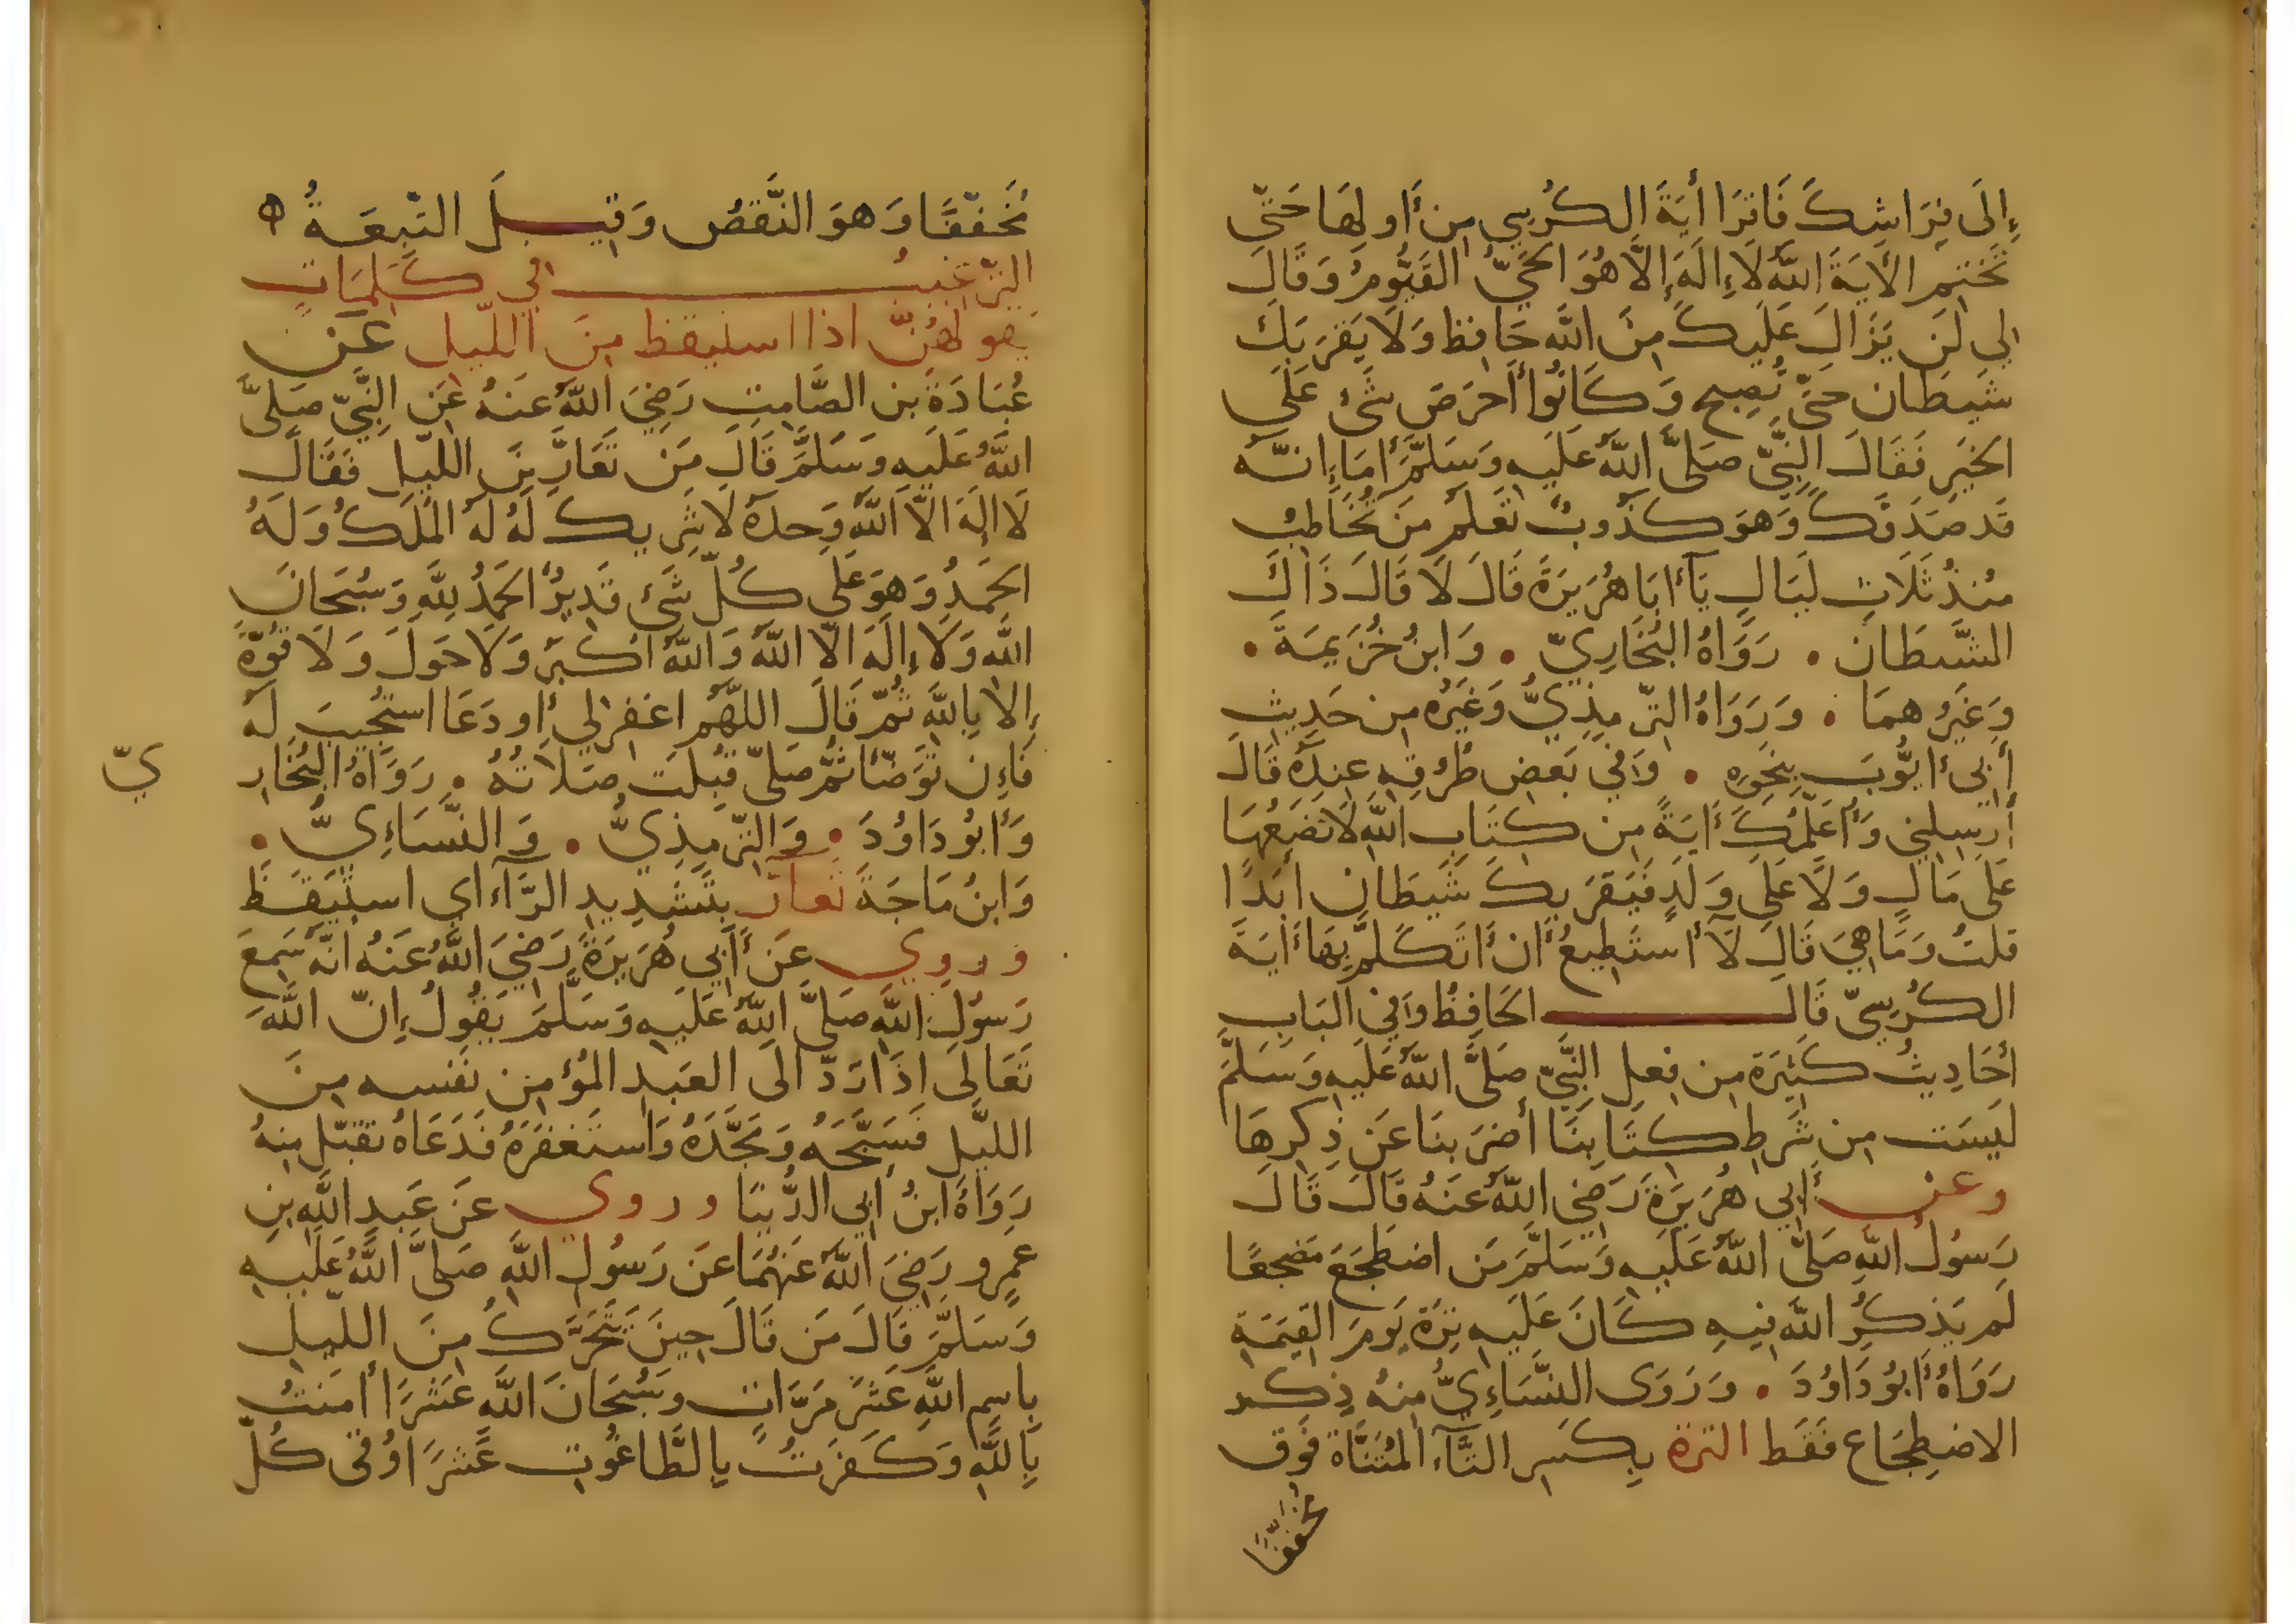 إِلَى فِرَاشِكَ فَاقرَا أيَةَ الكُرسِي مِن أَولِهَا حَتّى
تَختِم الأيَةَ اللّهُ لَاإِلَهَ إِلَّا هُوَ الحَيُّ القَيُّومُ وَقَالَ
لِي لَن يَزَالَ عَلَيكَ مِنَ اللَّه حَافِظ وَلَا يَقرَبَكَ
شَيطَان حَتَّى تُصبِح وَكَانُوا أَحرَصَ شَئ عَلَى
الخَيرِ فَقَالَ النَّبِيّ صَلَّى اللّهُ عَلَيهِ وَسَلَّمَ أَمَا إِنَّه
قَد صَدَقَكَ وَهوَ كَذُوبٌ تَعلَم مَن تُخَاطِبُ
مُنذُ ثَلَاثِ لَيَالٍ يَا أَبَا هُرَيرَةَ قَالَ لَا قَالَ ذَاكَ
الشَّيطَان . رَوَاهُ البُخَارِيّ . وَابنُ خُزَيمَةَ .
وَغَيرُهمَا . وَرَوَاهُ التّرمِذِيُّ وَغَيرُه مِن حَدِيثِ
أَبِي أَيُّوبَ بِنَحوِهِ . وَفِي بَعضِ طُرُقِهِ عِندَهُ قَالَ
أَرسِلنِي وَأُعَلِّمُكَ أَيَةً مِن كِتَابِ اللّهِ لَا تَضَعُهَا
عَلَى مَالٍ وَلَا عَلَى وَلَدٍ فَيَقرَبكَ شَيطَان أَبَدًا
قلتُ وَمَا هِيَ قَالَ لَا أَستَطِيعُ أَن أَتَكَلَّم بِهَا أَيَةَ
الكُرسِيّ قَالَ الحَافِظُ وَفِي البَابِ
أَحَادِيثُ كَثِيرَة مِن فِعلِ النَّبِيّ صَلَّى اللّهُ عَلَيهِ وَسَلَّمَ
لَيسَت مِن شَرطِ كِتَابِنَا أَضرَبنَا عَن ذِكرِهَا
وعن أَبِي هُرَيرَةَ رَضِيَ اللّهُ عَنهُ قَالَ قَالَ
رَسُولُ اللّهِ صَلَّى اللّهُ عَلَيهِ وَسَلَّمَ مَن اضطَجَعَ مَضجَعًا
لَم يَذكُرِ اللّهَ فِيهِ كَانَ عَلَيهِ تِرَة يَومَ القِيَمَةِ
رَوَاهُ أَبُو دَاوُدَ . وَرَوَى النَّسَاءِيُّ مِنهُ ذِكر
الاضطِجَاع فَقَط الترة بِكَسرِ التَّآءِ المُثَنَّاة فَوق
مُخَفّفًا
مُخَفّفًا وَهوَ النَّقصُ وَقِيلَ التّبِعَةُ ه
الترغيب في كَلِمَاتٍ
يقولهُنَّ اذا استيقظ مِنَ اللَّيلِ عَن
عُبَادَةَ بن الصَّامِتِ رَضِيَ اللّهُ عَنهُ عَنِ النَّبِيّ صَلَّى
اللّهُ عَلَيهِ وَسَلَّمَ قَالَ مَن تَعَارَّ مِنَ اللَّيلِ فَقَالَ
لَا الهَ الَّا اللّهُ وَحدَهُ لَا شَرِيكَ لَهُ لَهُ المُلكُ وَلَهُ
الحَمدُ وَهوَ عَلَى كُلّ شَئ قَدِيرٌ الحَمدُ لِلّهِ وَسُبحَانَ
اللّهِ وَلَا إِلَهَ الَّا اللّهُ وَاللّهُ أكبَرُ وَلَا حَولَ وَلَا قُوَّةَ
إِلا بِاللّهِ ثُمّ قَالَ اللَّهُم اغفِر لِي أَو دَعَا استُجِيبَ لَه
فَإِن تَوَضّأ ثُمّ صَلّى قُبِلَت صَلَاتُهُ . رَوَاهُ البُخَارِ
يّ
وَأَبُو دَاوُدَ . وَالتّرمِذِيُّ . وَالنَّسَاءِيُّ .
وَابنُ مَاجَةَ تَعارّ بِتَشدِيدِ الرَّآءِ اي استَيقَظ
وروي عَن أَبِي هُرَيرَةَ رَضِيَ اللّهُ عَنهُ انّه سَمِعَ
رَسُولَ اللّهِ صَلَّى اللّهُ عَلَيهِ وَسَلَّمَ يَقُولُ إِنّ اللّهَ
تَعَالَى اذَا رَدّ الَى العَبدِ المُؤمِن نَفسه مِنَ
اللَّيلِ فَسَبَّحَهُ وَمَجَّدَهُ وَاستَغفَرَهُ فَدَعَاهُ تقبّل مِنهُ
رَوَاهُ ابنُ أَبِي الدُّنيَا وروي عَن عَبدِ اللّهِ بنِ
عَمرٍو رَضِيَ اللّهُ عَنهُمَا عَن رَسُولِ اللّهِ صَلَّى اللّهُ عَلَيهِ
وَسَلَّمَ قَالَ مَن قَالَ حِينَ يَتَحَرَّكُ مِنَ اللَّيلِ
بِاسمِ اللّهِ عَشرَ مَرَّات وَسُبحَانَ اللّهِ عَشرًا أَمَنتُ
بِاللّهِ وَكَفَرتُ بِالطَّاغُوتِ عَشرًا وُقى كُلَّ